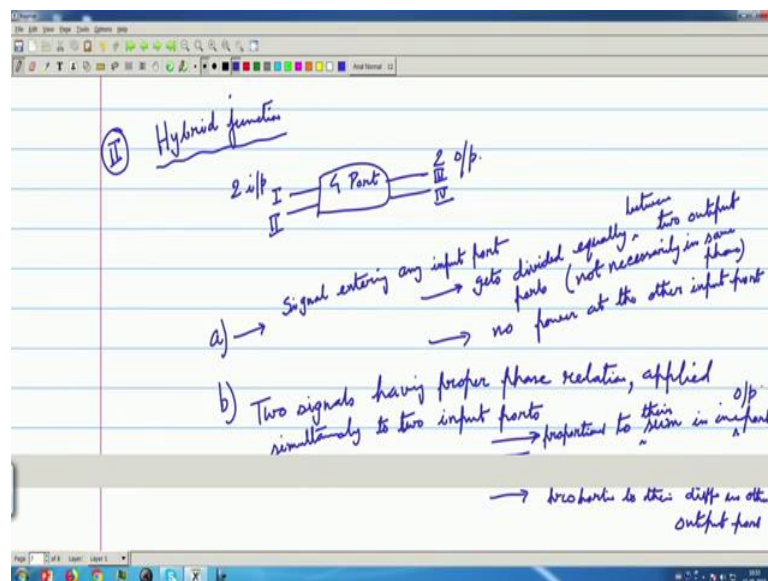 File Edit View Page Tools Options Help
Arial Normal 12
II Hybrid function
2 i/p I 4 Port 2 o/p.
II III
IV
a) → Signal entering any input port
→ gets divided equally between two output
ports (not necessarily in same
phase)
→ no power at the other input port
b) Two signals having proper phase relation, applied
simultanealy to two input ports
→ proportional to their sum in one o/p port
→ proportio to their diff in other
output port
Page 7 of 8 Layer: Layer 1